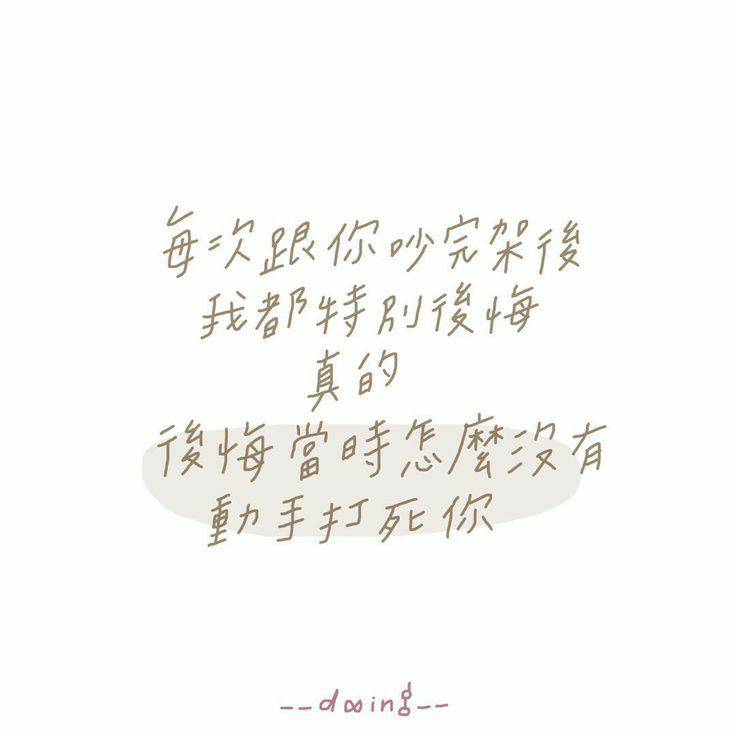 每次跟你吵完架後
我都特別後悔
真的
後悔當時怎麼沒有
動手打死你
--dooing--